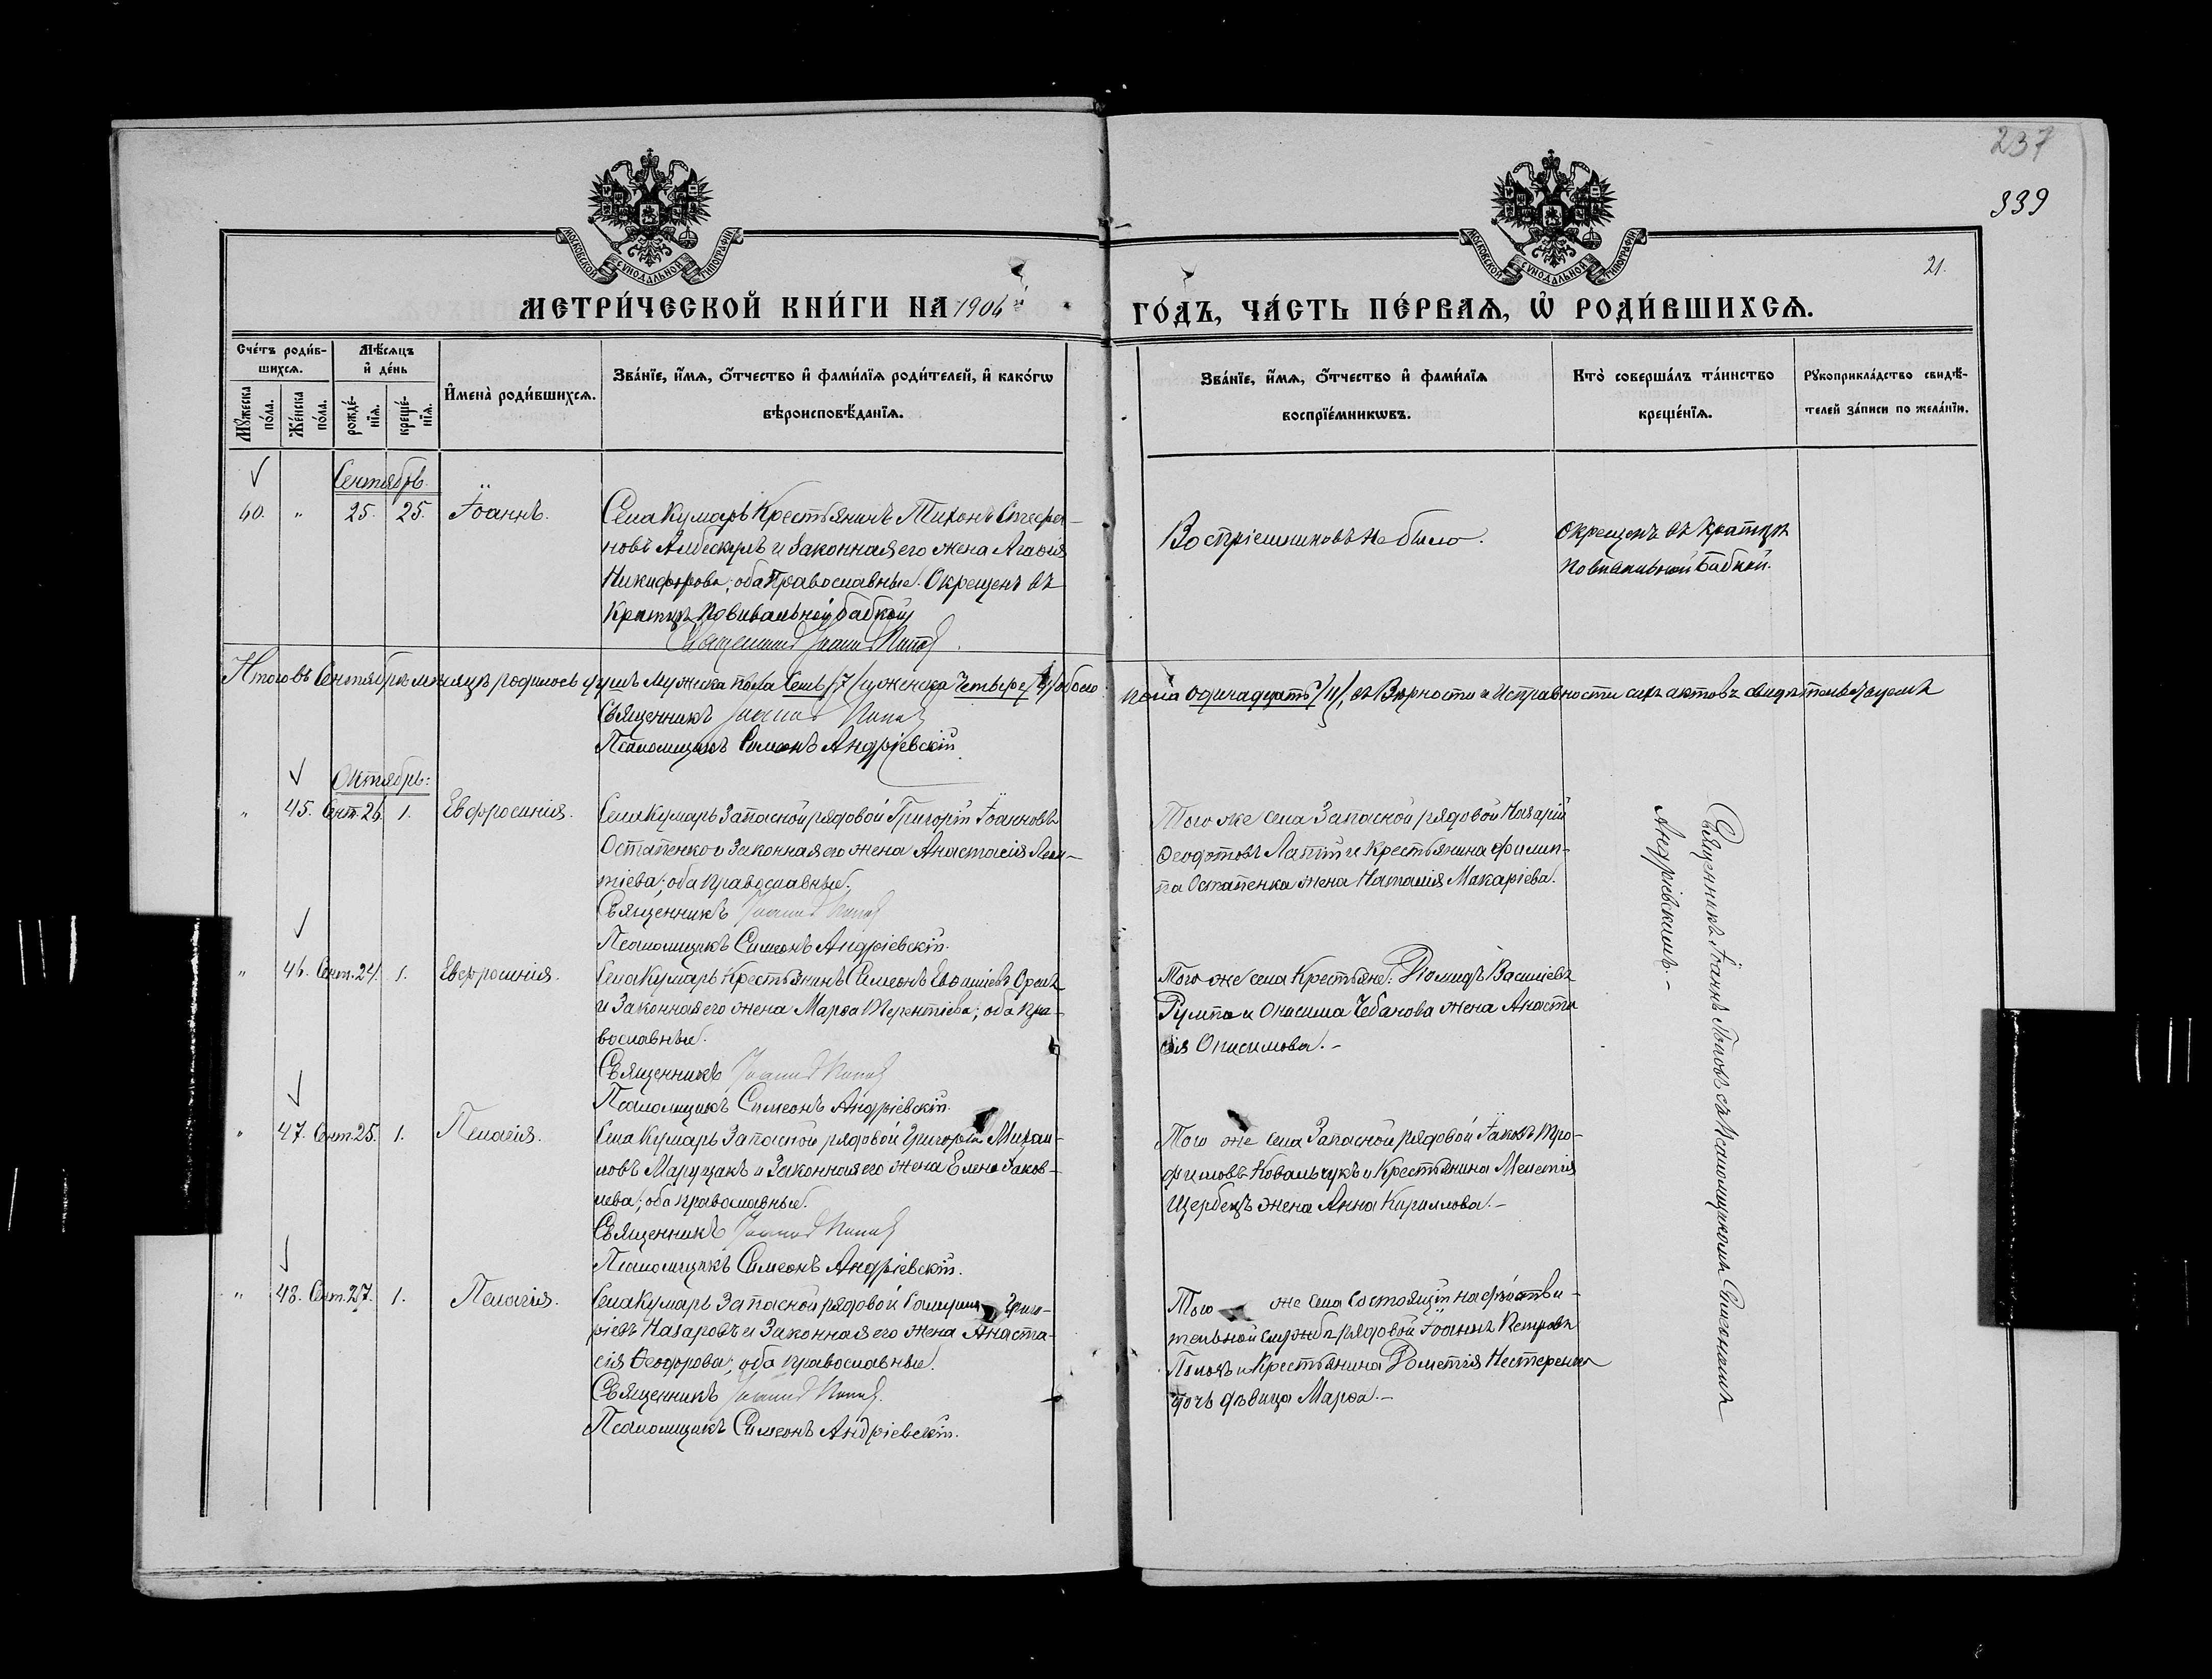 237
339
21.
МОСКОВСКОЙ СѴНОДАЛЬНОЙ ТИПОГРАФІИ
МОСКОВСКОЙ СѴНОДАЛЬНОЙ ТИПОГРАФІИ
МЕТРИ́ЧЕСКОЙ КНИ́ГИ НА 1904й
ГО́ДЪ, ЧА́СТЬ ПЕ́РВАѦ, Ѡ҆ РОДИ́ВШИХСѦ.
Сче́тъ роди́в-
шихсѧ.
Мꙋ́жеска по́ла.
Же́нска по́ла.
Мѣ́сѧцъ
и҆ де́нь
рожде́-
нїѧ.
креще́-
нїѧ.
И҆мена̀ роди́вшихсѧ.
Зва́нїе, и҆́мѧ, ѻ҆́тчество и҆ фами́лїѧ роди́телей, и҆ како́гѡ
вѣроисповѣ́данїѧ.
Зва́нїе, и҆́мѧ, ѻ҆́тчество и҆ фами́лїѧ
воспрїе́мникѡвъ.
Кто̀ соверша́лъ та́инство
креще́нїѧ.
Рꙋкоприкла́дство свидѣ́-
телей за́писи по жела́нїю.
Сентябрь.
40. " 25. 25. Іоаннъ.
Села Кумарь Крестьянинъ Тихонъ Стефа-
новъ Албескулъ и Законная его жена Агафія
Никифорова; оба Православные. Окрещенъ въ
Кратцѣ повивальной бабкой
Священникъ Іоаннъ Поповъ
Воспріемниковъ не было.
Окрещенъ въ Кратцѣ
Повивальной Бабкой.
Итого въ Сентябрѣ мѣсяцѣ родилось душъ Мужеска пола Семь /7/ и женска Четыре /4/ обоего пола одинадцать /11/, въ Вѣрности и Исправности сихъ актовъ свидѣтельствуемъ
Священникъ Іоаннъ Поповъ
Псаломщикъ Симеонъ Андріевскій.
Октябрь:
" 45. Сент. 26. 1. Евфросинія.
Села Кумарь Запасной рядовой Григорій Іоанновъ
Остапенко и Законная его жена Анастасія Леон-
тіева; оба православные.
Священникъ Іоаннъ Поповъ
Псаломщикъ Симеонъ Андріевскій.
Того же села Запасной рядовой Назарій
Ѳеодотовъ Лаптій и Крестьянина Филип-
па Остапенка жена Наталія Макаріева.
Священникъ Іоаннъ Поповъ съ Псаломщикомъ Симеономъ
Андріевскимъ.-
" 46. Сент. 24. 1. Евфросинія.
Села Кумарь Крестьянинъ Симеонъ Евѳиміевъ Орелъ
и Законная его жена Марѳа Терентіева; оба пра-
вославные.
Священникъ Іоаннъ Поповъ
Псаломщикъ Симеонъ Андріевскій.
Того же села Крестьяне: Діомидъ Василіевъ
и Онисима Чебанова жена Анаста
сія Онисимова.-
" 47. Сент. 25. 1. Пелагія.
Села Кумарь Запасной рядовой Григорій Михаи-
ловъ Марущакъ и Законная его жена Елена Іаков-
лева; оба православные.
Священникъ Іоаннъ Поповъ
Псаломщикъ Симеонъ Андріевскій.
Того же села Запасной рядовой Іаковъ Тро-
фимовъ Ковальчукъ и Крестьянина Мелетія
Щербецъ жена Анна Кириллова.-
" 48. Сент. 27. 1. Пелагія.
Села Кумарь Запасной рядовой Григо-
ріевъ Назаровъ и Законная его жена Анаста-
сія Ѳеодорова; оба православные.
Священникъ Іоаннъ Поповъ.
Псаломщикъ Симеонъ Андріевскій.
Того же села Состоящій на дѣйстви-
тельной службѣ рядовой Іоаннъ Петровъ
и Крестьянина Нестеренка
дочь дѣвица Марѳа.-